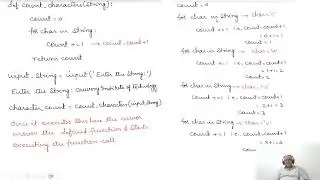 def count_character(string):
count = 0
for char in string:
count += 1 → count = count+1
return count
input_string = input('Enter the String:')
Enter the String: Cauvery Institute of Technology
character_count = count_character(input_string)
Once it executes this line the cursor
invokes the defined function & starts
executing the function call
count = 0
for char in string → char = 'C'
count += 1 i.e. count = count+1
= 0+1 = 1
for char in string → char = 'a'
count += 1 i.e. count = count+1
= 1+1 = 2
for char in string → char = 'u'
count += 1 i.e. count = count+1
= 2+1 = 3
for char in string → char = 'v'
count += 1 i.e. count = count+1
= 3+1 = 4
coun